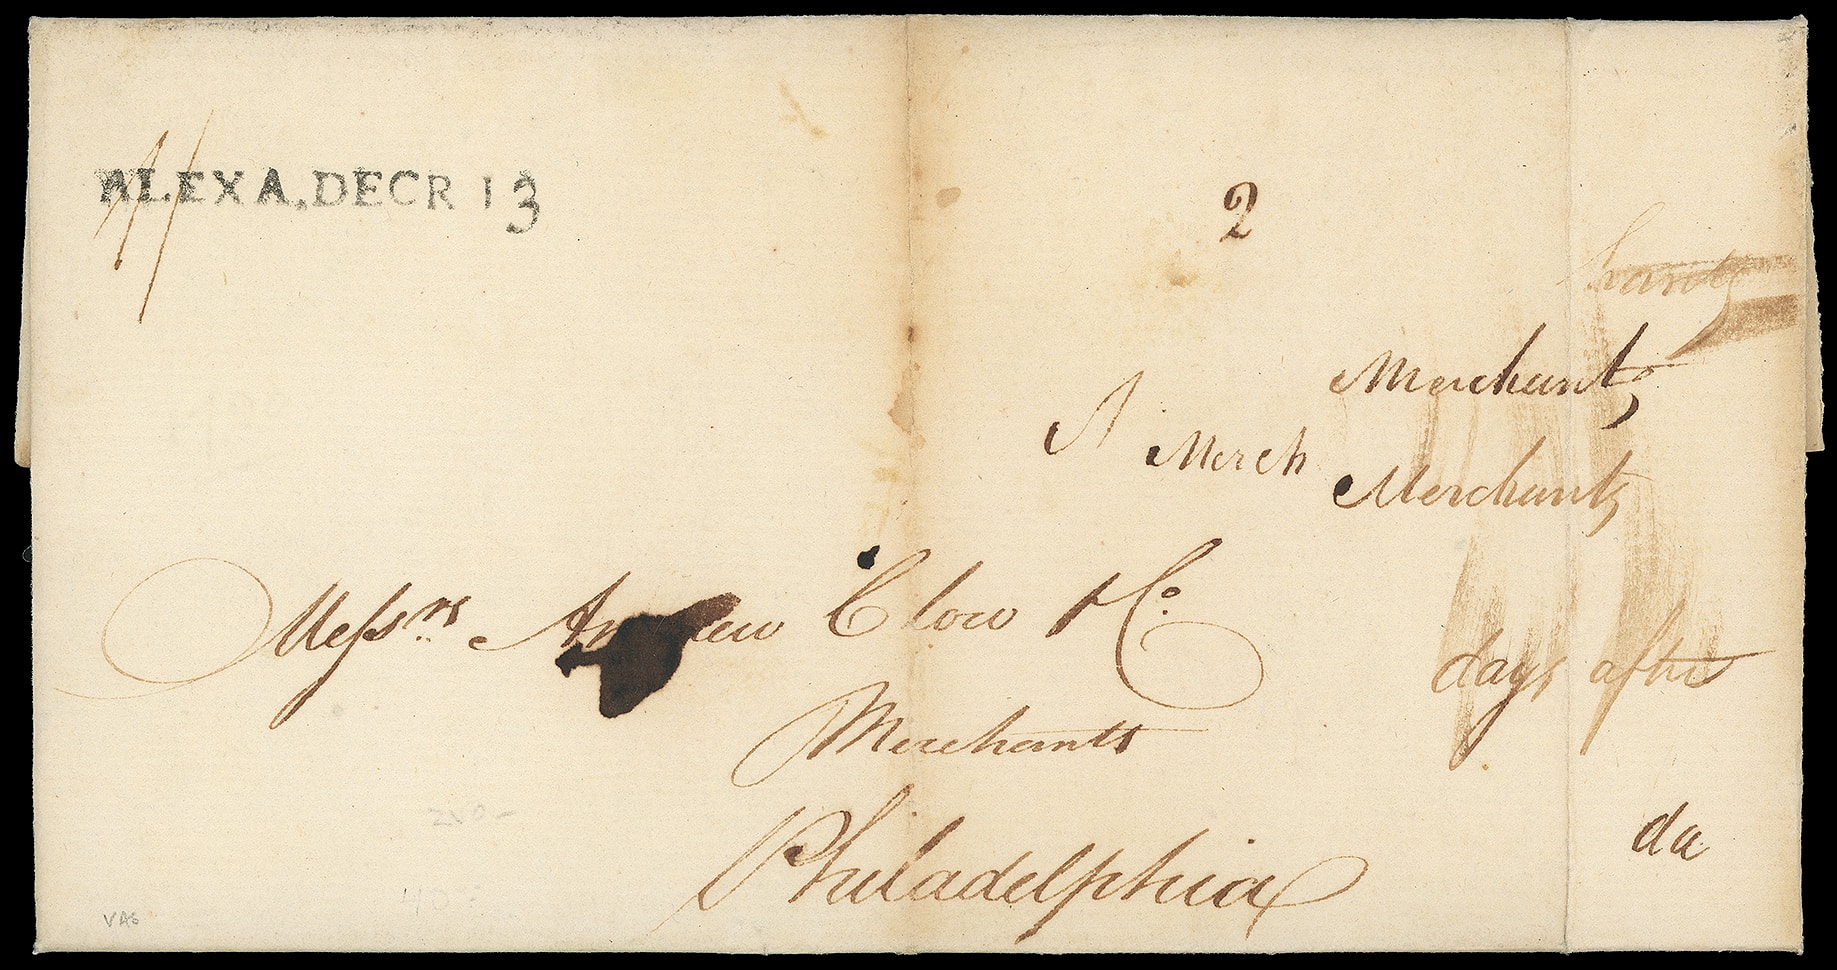 ALEXA. DECR 13
2
Merchants
A Merch
Merchants
Messrs Andrew Clow & Co.
days after
Merchants
Philadelphia
da
VA6